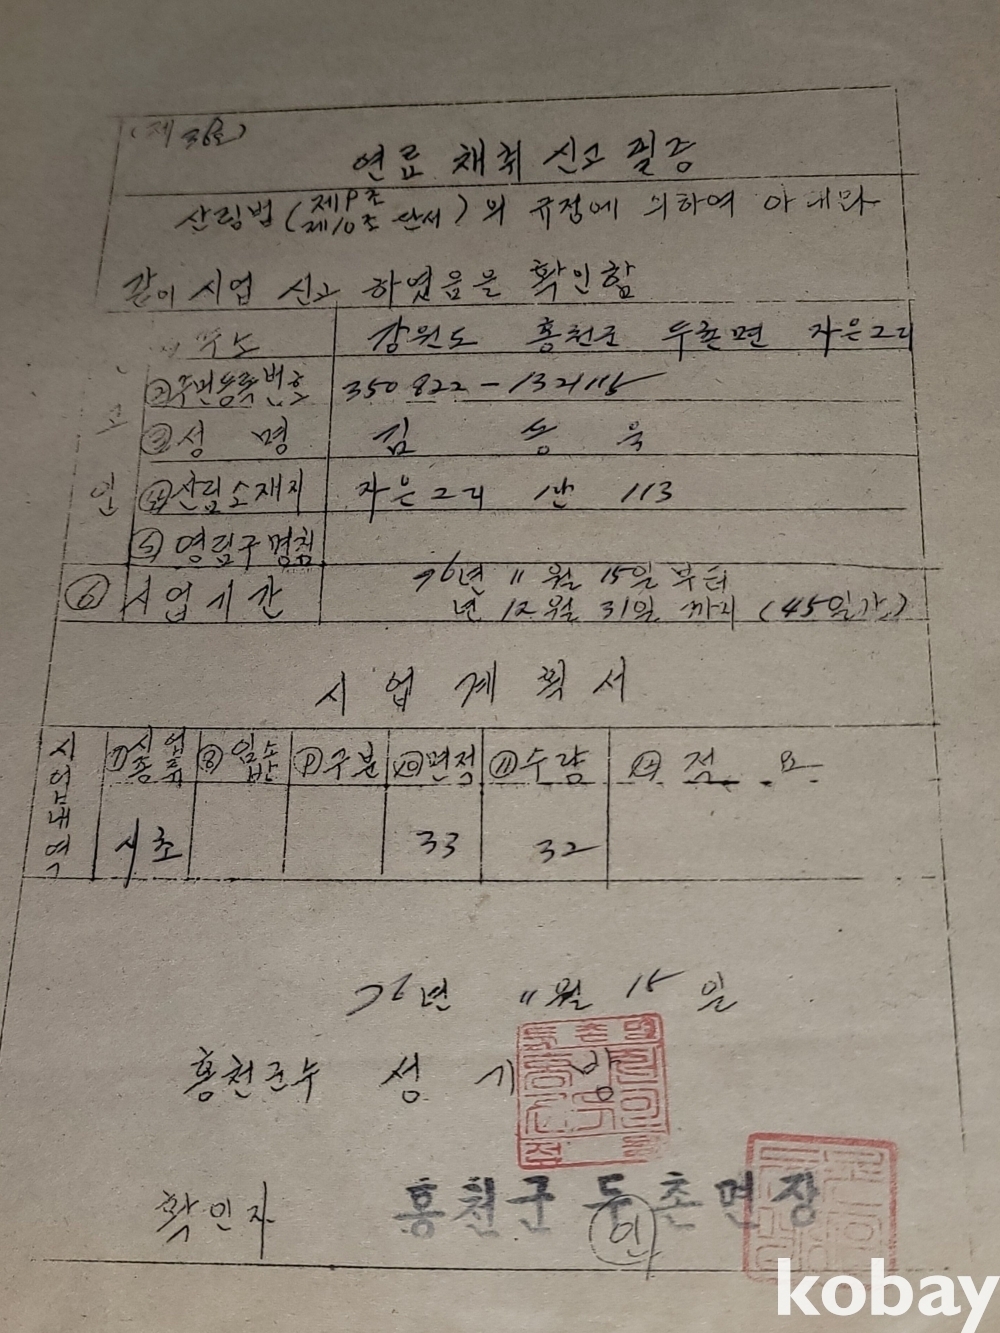 (제 36호)
연료 채취 신고 필증
산림법 (제9조 제10조 단서) 의 규정에 의하여 아래와
같이 시업 신고 하였음을 확인함
신고인
주소 강원도 홍천군 두촌면 자은2리
②주민등록번호 350822-1321115
③성 명 김 응 욱
④산림소재지 자은2리 산 113
⑤영림구명칭
⑥시업기간 76년 11월 15일 부터
년 12월 31일 까지 (45일간)
시 업 계 획 서
시업내역 ⑦시업종류 ⑧임소반 ⑨구분 ⑩면적 ⑪수량 ⑫적 요
시초 33 32
76년 11월 15일
홍천군수 성 기 방
확인자 홍천군 두촌면장
인
kobay